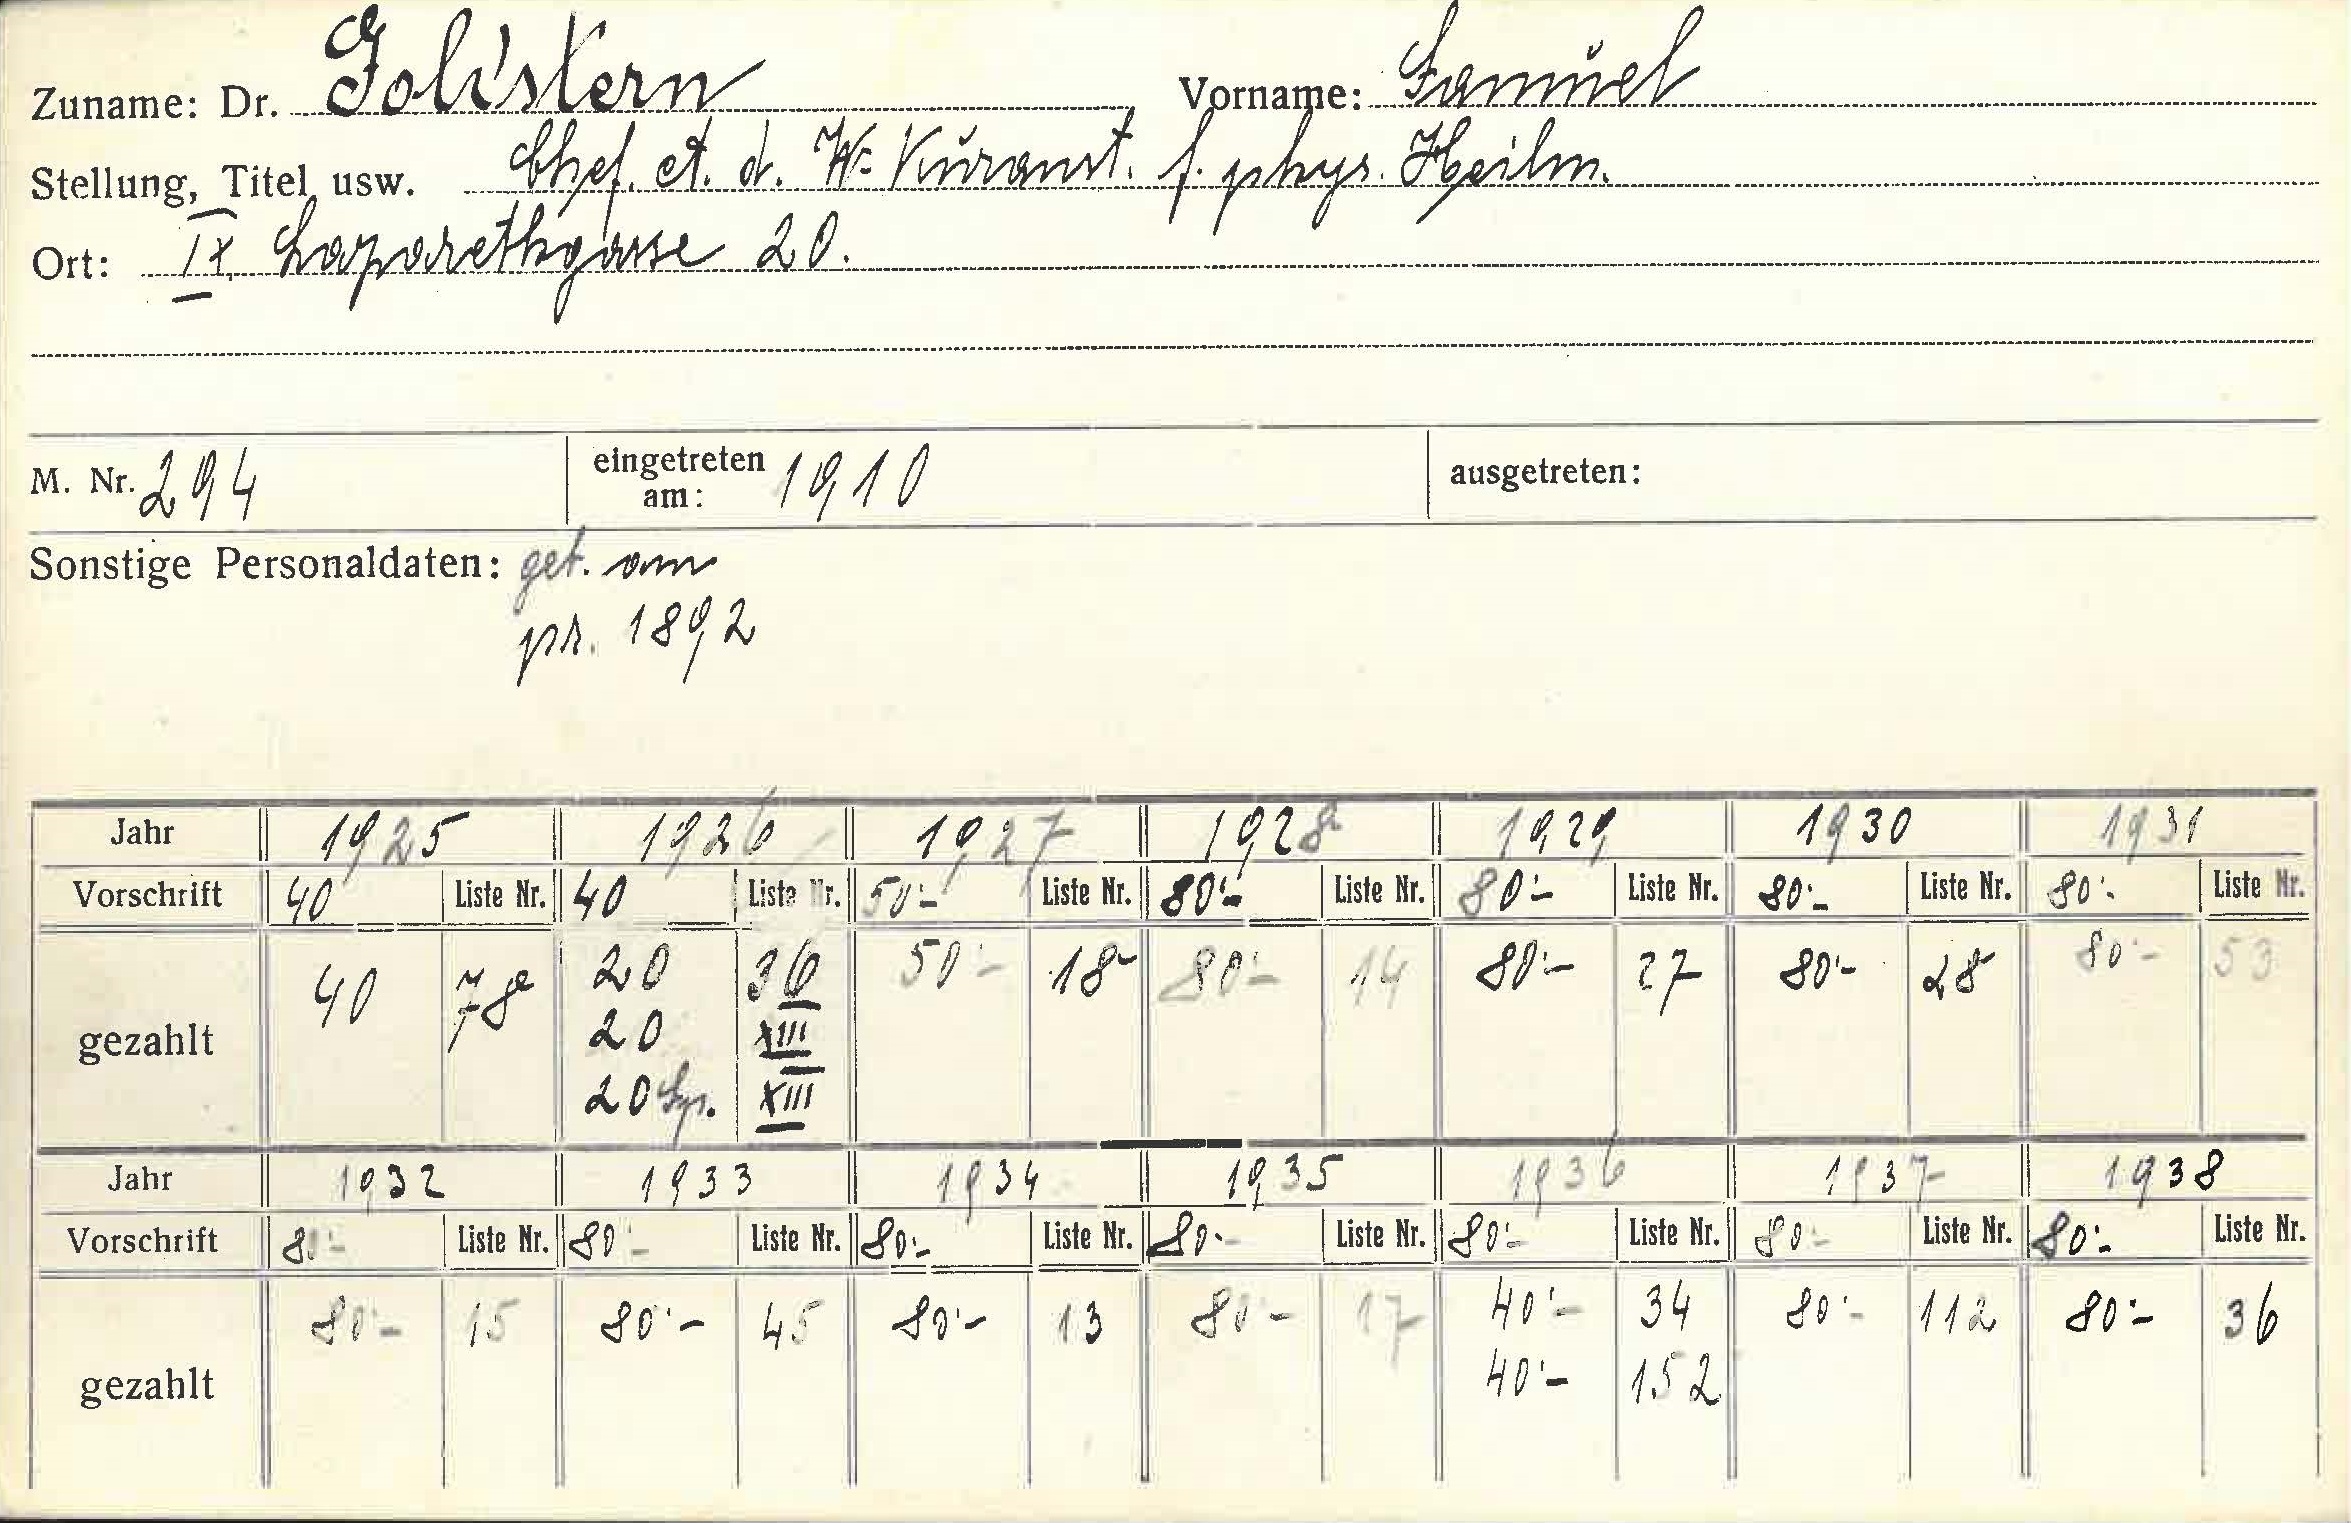 Zuname: Dr. Goldstern Vorname: Samuel
Stellung, Titel usw. Chef. A. d. W. Kuranst. f. phys. Heilm.
Ort: IX. Lazarethgasse 20.
M. Nr. 294 eingetreten am: 1910 ausgetreten:
Sonstige Personaldaten: geb. am
pr. 1892
Jahr 1925 1926 1927 1928 1929 1930 1931
Vorschrift 40 Liste Nr. 40 Liste Nr. 50·- Liste Nr. 80·- Liste Nr. 80·- Liste Nr. 80·- Liste Nr. 80·- Liste Nr.
gezahlt 40 20 36 50·- 18 80·- 14 80·- 27 80·- 28 80·- 53
20 XIII
20 Sp. XIII
Jahr 1932 1933 1934 1935 1936 1937 1938
Vorschrift 80·- Liste Nr. 80·- Liste Nr. 80·- Liste Nr. 80·- Liste Nr. 80·- Liste Nr. 80·- Liste Nr. 80·- Liste Nr.
gezahlt 80·- 15 80·- 45 80·- 13 80·- 17 40·- 34 80·- 112 80·- 36
40·- 152